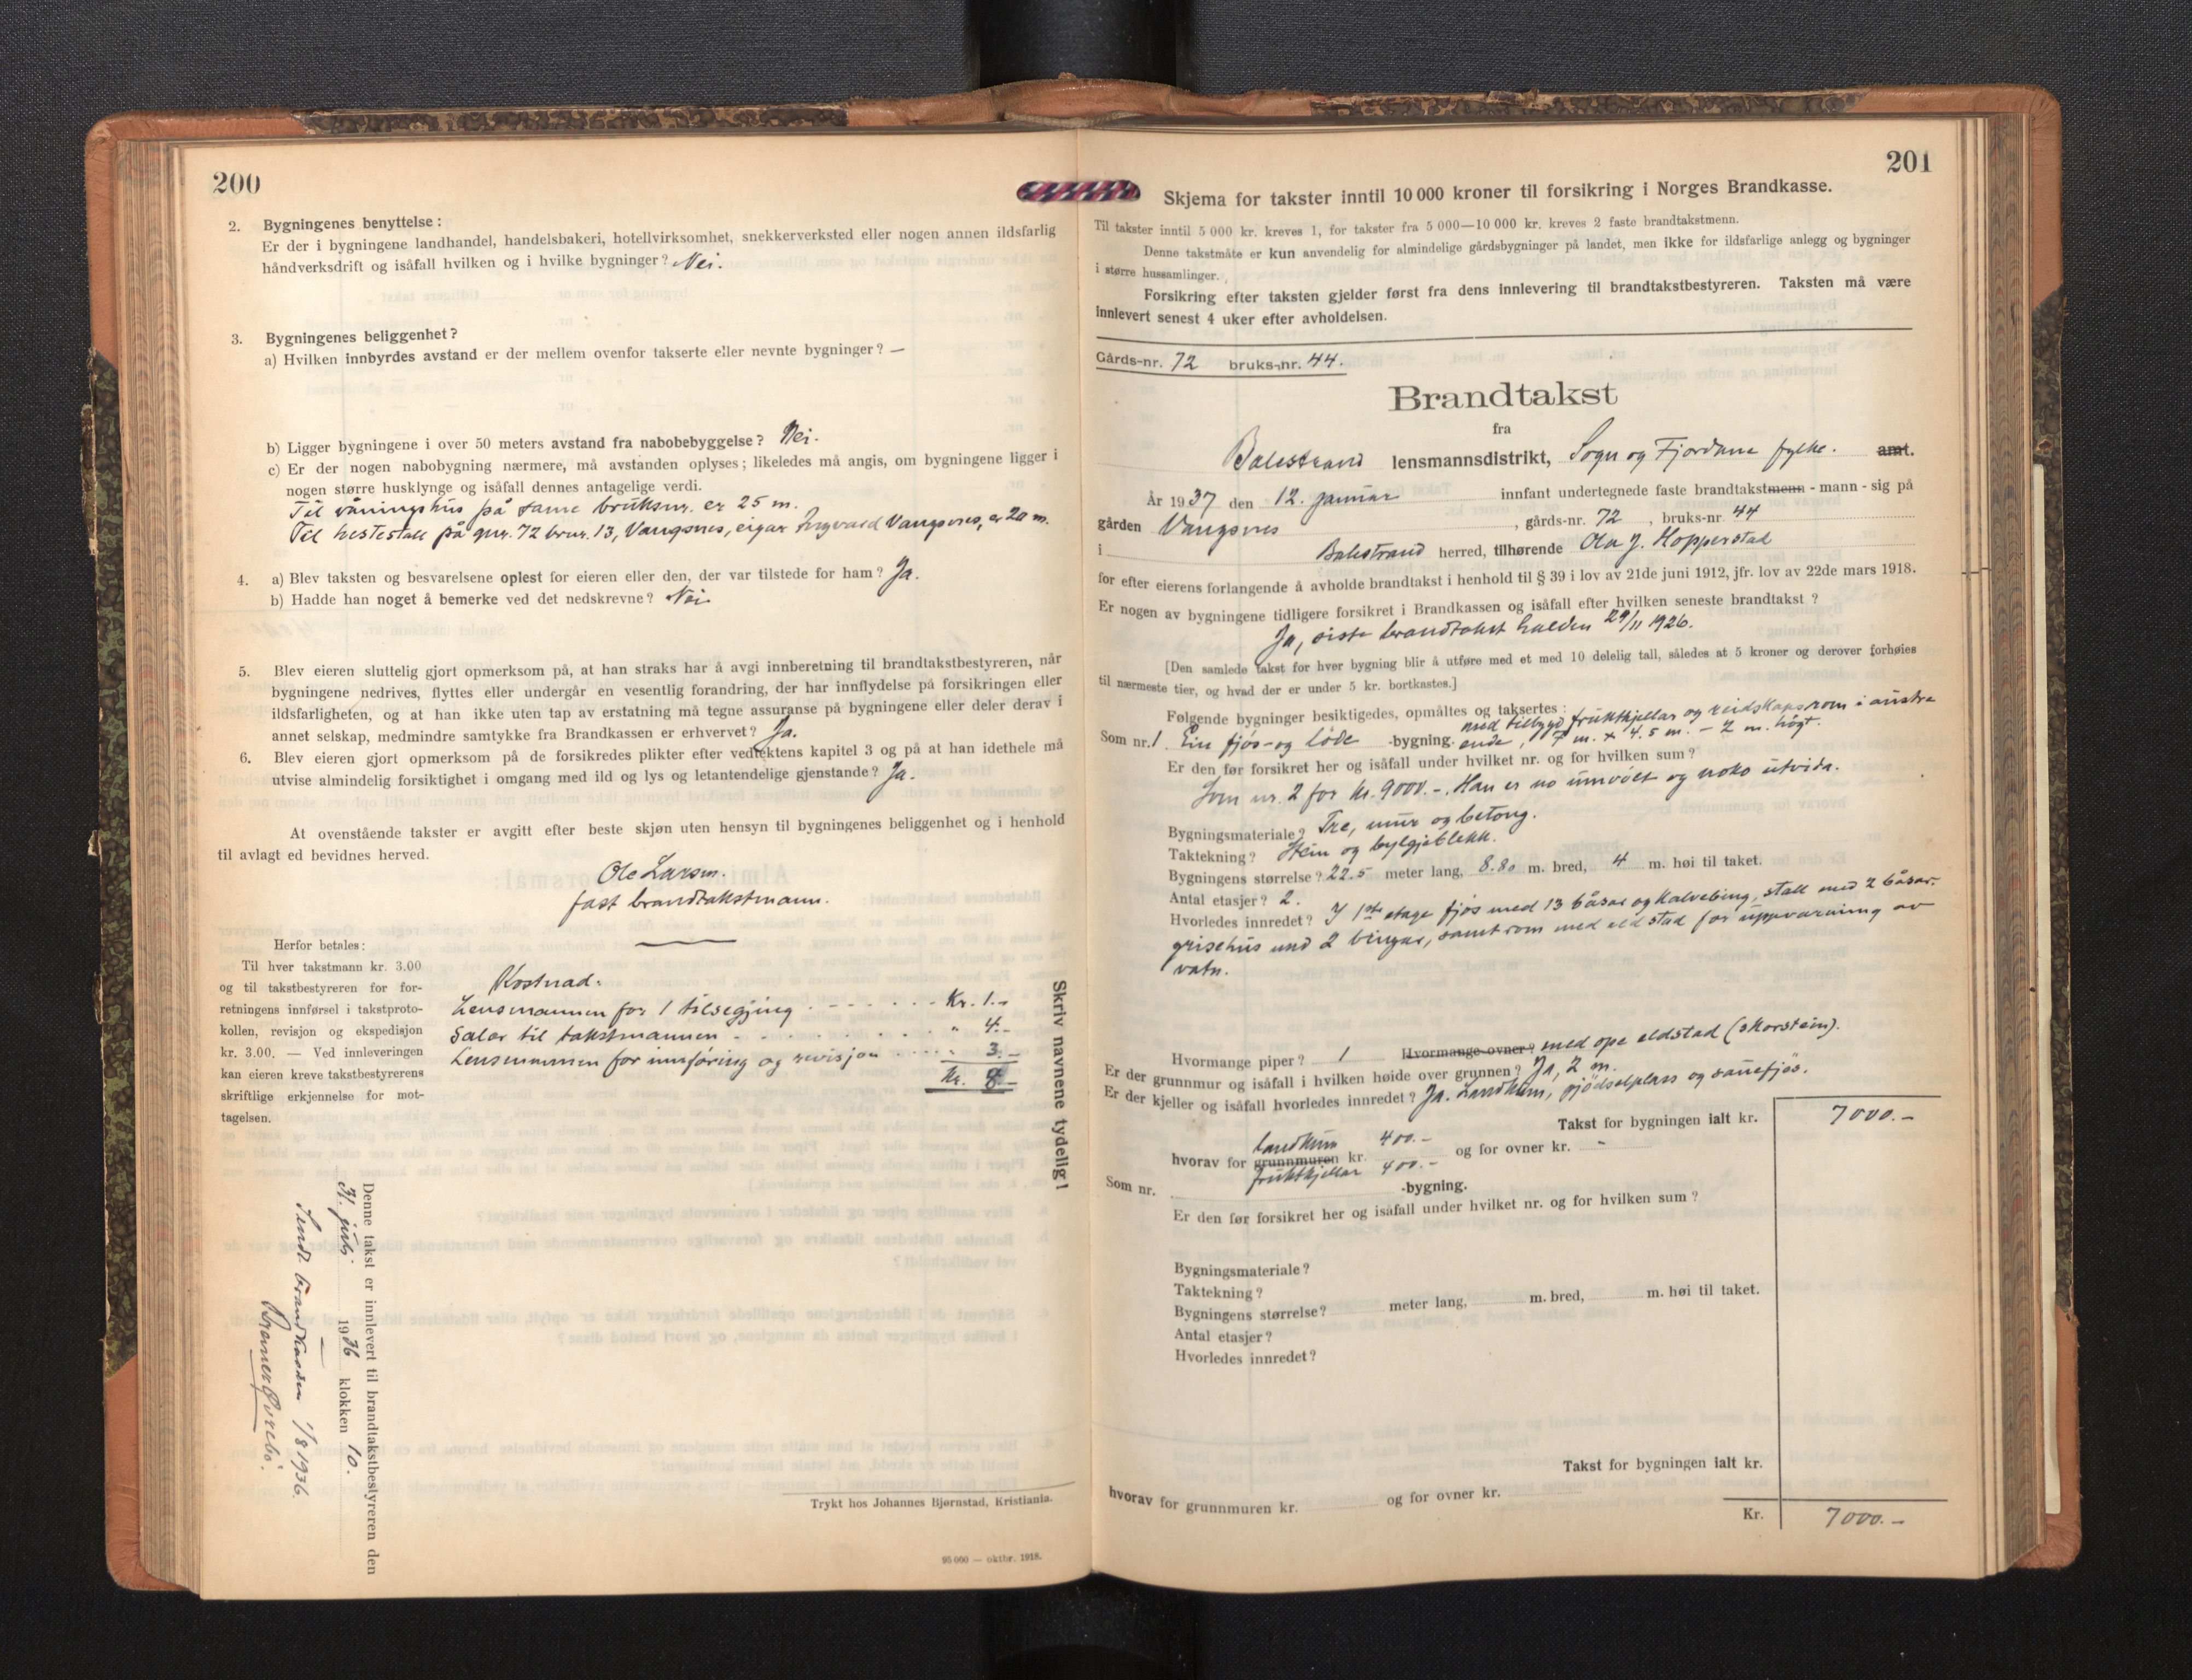 200
2. Bygningenes benyttelse:
Er der i bygningene landhandel, handelsbakeri, hotellvirksomhet, snekkerverksted eller nogen annen ildsfarlig
håndverksdrift og isåfall hvilken og i hvilke bygninger? Nei.
3. Bygningenes beliggenhet?
a) Hvilken innbyrdes avstand er der mellem ovenfor takserte eller nevnte bygninger? —
b) Ligger bygningene i over 50 meters avstand fra nabobebyggelse? Nei.
c) Er der nogen nabobygning nærmere, må avstanden oplyses; likeledes må angis, om bygningene ligger i
nogen større husklynge og isåfall dennes antagelige verdi.
Til våningshus på same bruksnr. er 25 m.
Til hestestall på gnr. 72 brnr. 13, Vangsnes, eigar Ingvald Vangsnes, er 20 m.
4. a) Blev taksten og besvarelsene oplest for eieren eller den, der var tilstede for ham? Ja.
b) Hadde han noget å bemerke ved det nedskrevne? Nei
5. Blev eieren sluttelig gjort opmerksom på, at han straks har å avgi innberetning til brandtakstbestyreren, når
bygningene nedrives, flyttes eller undergår en vesentlig forandring, der har innflydelse på forsikringen eller
ildsfarligheten, og at han ikke uten tap av erstatning må tegne assuranse på bygningene eller deler derav i
annet selskap, medmindre samtykke fra Brandkassen er erhvervet? Ja.
6. Blev eieren gjort opmerksom på de forsikredes plikter efter vedtektens kapitel 3 og på at han idethele må
utvise almindelig forsiktighet i omgang med ild og lys og letantendelige gjenstande? Ja.
At ovenstående takster er avgitt efter beste skjøn uten hensyn til bygningenes beliggenhet og i henhold
til avlagt ed bevidnes herved.
Ole Larsen.
fast brandtakstmann.
Herfor betales:
Til hver takstmann kr. 3.00
og til takstbestyreren for for-
retningens innførsel i takstproto-
kollen, revisjon og ekspedisjon
kr. 3.00. — Ved innleveringen
kan eieren kreve takstbestyrerens
skriftlige erkjennelse for mot-
tagelsen.
Kostnad:
Lensmannen for 1 tilsegjing . - - - - - - Kr. 1.-
Salar til takstmannen - - - - - - - " 4.-
Lensmannen for innføring og revisjon . . . . " 3.-
Kr. 8.-
Skriv navnene tydelig!
Denne takst er innlevert til brandtakstbestyreren den
31. juli 1936 klokken 10.
Sendt brandkassen 1/8 1936.
Trykt hos Johannes Bjørnstad, Kristiania.
95 000 — oktbr. 1918.
201
Skjema for takster inntil 10 000 kroner til forsikring i Norges Brandkasse.
Til takster inntil 5 000 kr. kreves 1, for takster fra 5 000—10 000 kr. kreves 2 faste brandtakstmenn.
Denne takstmåte er kun anvendelig for almindelige gårdsbygninger på landet, men ikke for ildsfarlige anlegg og bygninger
i større hussamlinger.
Forsikring efter taksten gjelder først fra dens innlevering til brandtakstbestyreren. Taksten må være
innlevert senest 4 uker efter avholdelsen.
Gårds-nr. 72 bruks-nr. 44.
Brandtakst
fra
Balestrand lensmannsdistrikt, Sogn og Fjordane fylke. amt.
År 1937 den 12. januar innfant undertegnede faste brandtakstmenn - mann - sig på
gården Vangsnes, gårds-nr. 72, bruks-nr 44
i Balestrand herred, tilhørende Ola J. Hopperstad
for efter eierens forlangende å avholde brandtakst i henhold til § 39 i lov av 21de juni 1912, jfr. lov av 22de mars 1918.
Er nogen av bygningene tidligere forsikret i Brandkassen og isåfall efter hvilken seneste brandtakst?
Ja, siste brandtakst halden 29/11 1926.
[Den samlede takst for hver bygning blir å utføre med et med 10 delelig tall, således at 5 kroner og derover forhøies
til nærmeste tier, og hvad der er under 5 kr. bortkastes.]
Følgende bygninger besiktigedes, opmåltes og taksertes:
Som nr. 1. Ein fjøs- og løde -bygning. med tilbygd fruktkjellar og reidskapsrom i austre
ende, 7 m. x 4.5 m. - 2 m. høgt.
Er den før forsikret her og isåfall under hvilket nr. og for hvilken sum?
Som nr. 2 for kr. 9000.-. Han er no umvølt og noko utvida.
Bygningsmateriale? Tre, mur og betong.
Taktekning? Stein og bylgjeblekk.
Bygningens størrelse? 22.5 meter lang, 8.80 m. bred, 4 m. høi til taket.
Antal etasjer? 2.
Hvorledes innredet? I 1ste etage fjøs med 13 båsar og kalvebing, stall med 2 båsar.
grisehus med 2 bingar, samt rom med eldstad for uppvarming av
vatn.
Hvormange piper? 1 Hvormange ovner? med ope eldstad (skorstein).
Er der grunnmur og isåfall i hvilken høide over grunnen? Ja, 2 m.
Er der kjeller og isåfall hvorledes innredet? Ja. Landkum, gjødselplass og sauefjøs.
Takst for bygningen ialt kr. 7000.-
landkum 400.-
hvorav for grunnmuren kr. og for ovner kr. -
fruktkjellar 400.-
Som nr. -bygning.
Er den før forsikret her og isåfall under hvilket nr. og for hvilken sum?
Bygningsmateriale?
Taktekning?
Bygningens størrelse? meter lang, m. bred, m. høi til taket.
Antal etasjer?
Hvorledes innredet?
Takst for bygningen ialt kr.
hvorav for grunnmuren kr. og for ovner kr.
Kr. 7000.-